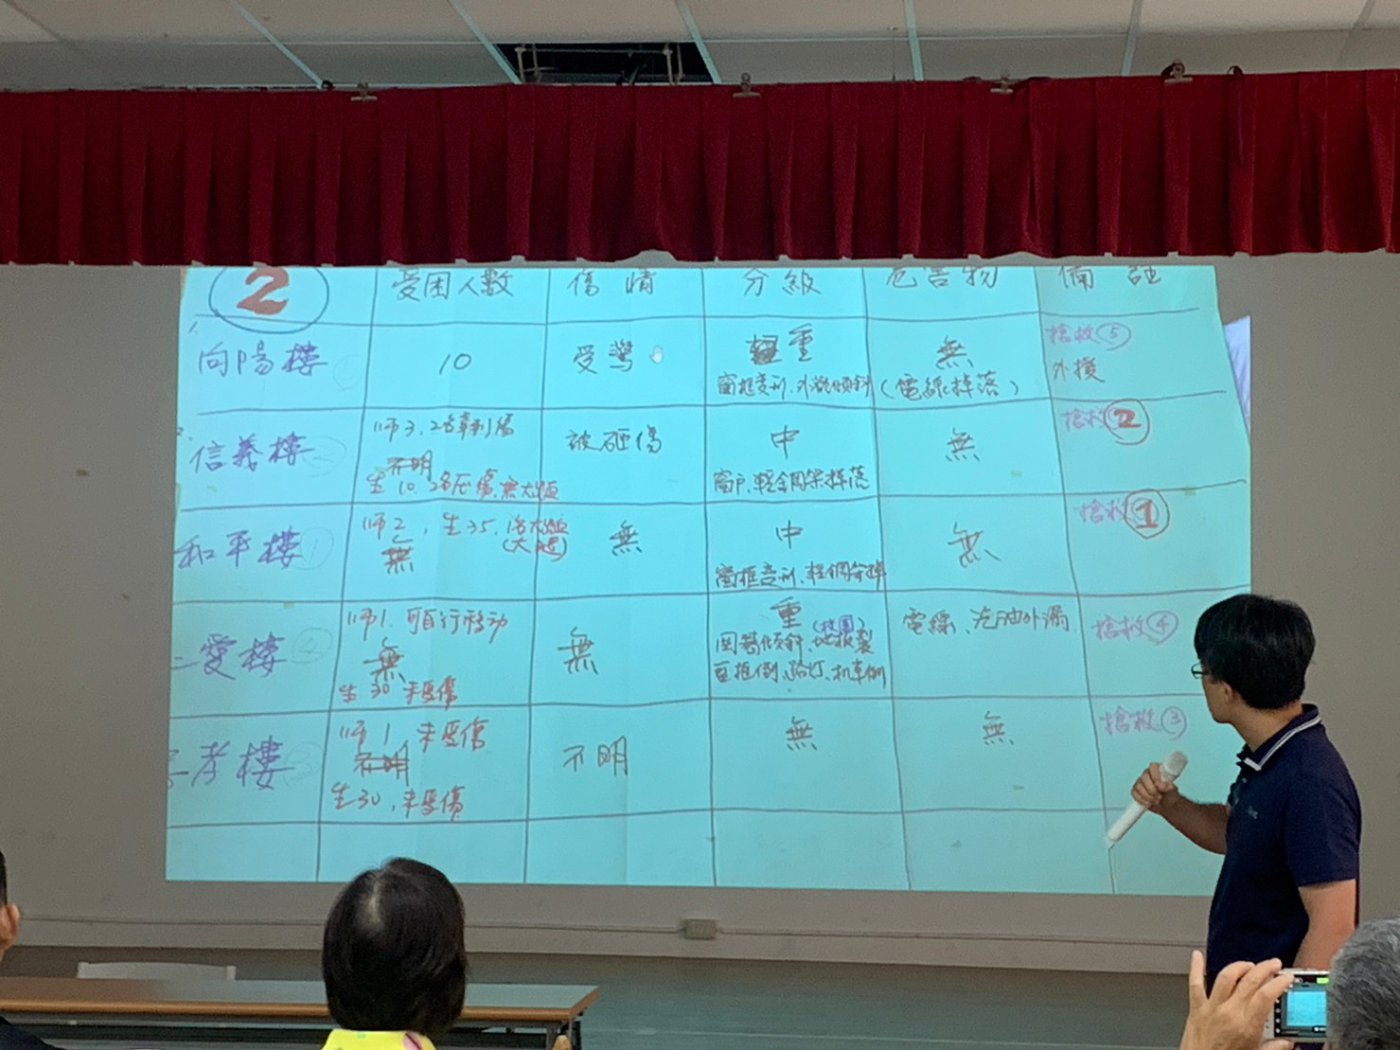 2 受困人數 傷情 分級 危害物 備註
向陽樓 10 受驚 重 無 搶救⑤
窗框變形、外牆傾斜 (電線掉落) 外援
信義樓 師3, 2名 傷 被砸傷 中 無 搶救②
不明
生10, 2名 窗戶、輕鋼架掉落
和平樓 ① 師2, 生35, 無 中 無 搶救①
無 窗框變形、輕鋼架掉
愛樓 ④ 師1, 可自行移動 無 重 (校園) 電線、汽油外漏 搶救④
無 圍牆傾斜、地板裂
生30 未受傷 倒、路灯、机車倒
孝樓 師1, 未受傷 不明 無 無 搶救③
不明
生30, 未受傷